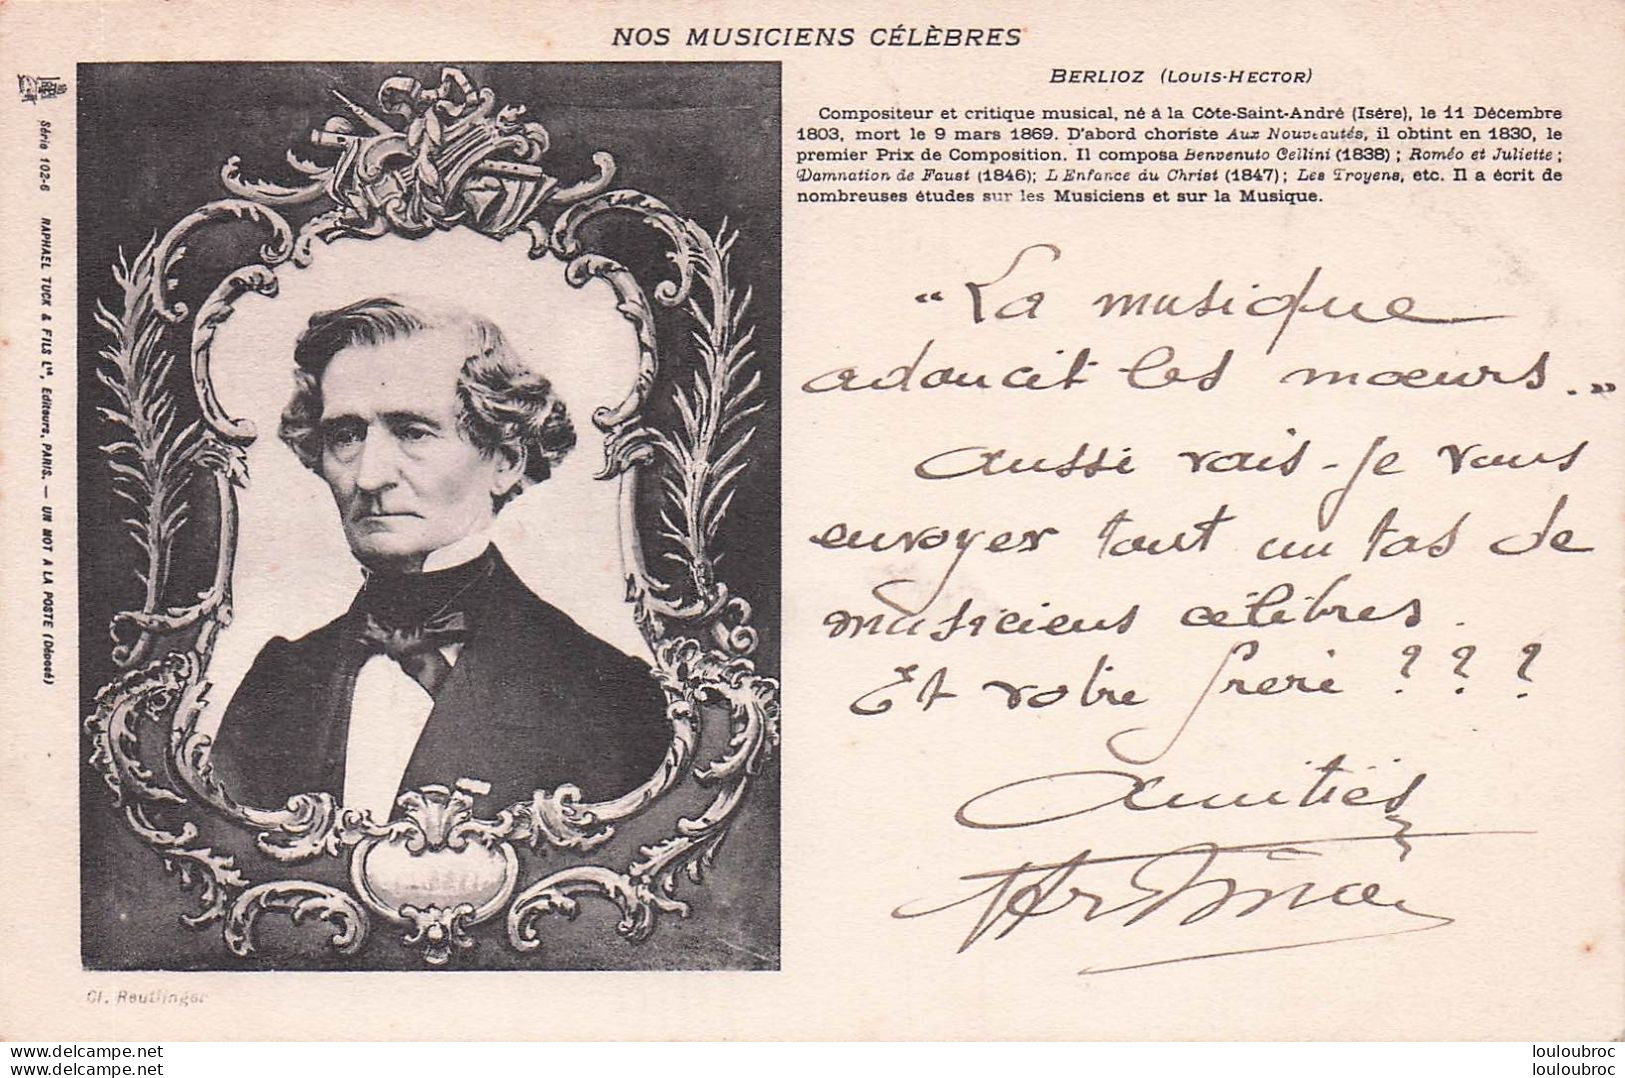 NOS MUSICIENS CÉLÈBRES
BERLIOZ (LOUIS-HECTOR)
Compositeur et critique musical, né à la Côte-Saint-André (Isère), le 11 Décembre
1803, mort le 9 mars 1869. D'abord choriste Aux Nouveautés, il obtint en 1830, le
premier Prix de Composition. Il composa Benvenuto Cellini (1838) ; Roméo et Juliette ;
Damnation de Faust (1846); L Enfance du Christ (1847) ; Les Troyens, etc. Il a écrit de
nombreuses études sur les Musiciens et sur la Musique.
"La musique
adoucit les mœurs."
Aussi vais-je vous
envoyer tout un tas de
musiciens célèbres.
Et votre frère ? ? ?
Amitiés
Série 102-6 RAPHAEL TUCK & FILS Ltd, Editeurs, PARIS. — UN MOT A LA POSTE (Déposé)
Cl. Reutlinger
www.delcampe.net
www.delcampe.net
louloubroc
louloubroc